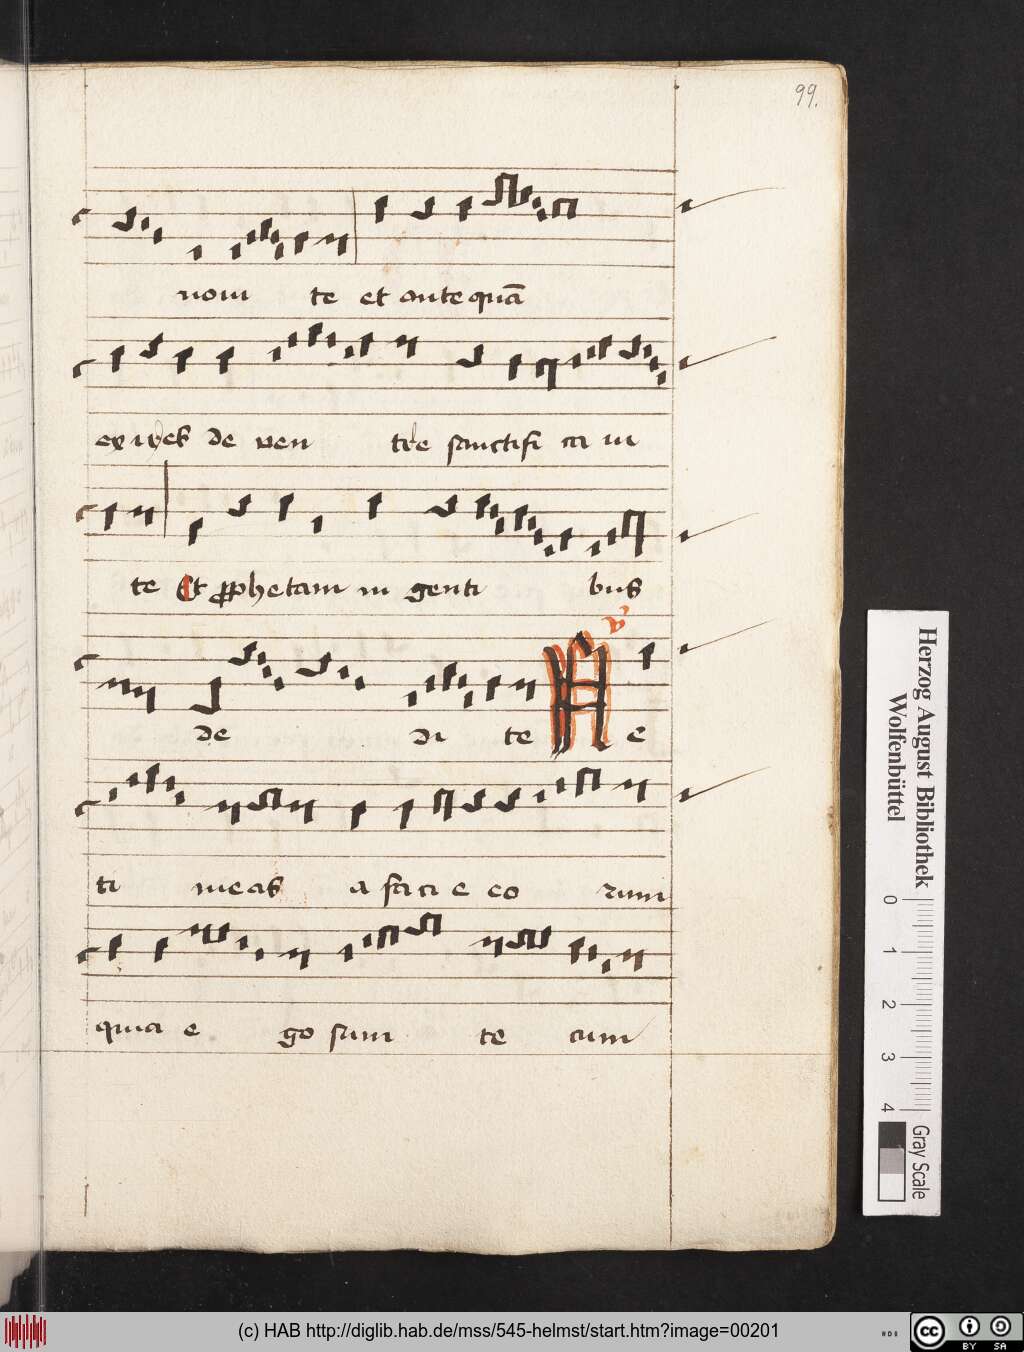 99.
noui te et antequā
exires de ven tre sanctifi ca ui
te Et prophetam in genti bus
de di te N e
ti meas a faci e eo rum
quia e go sum te cum
Herzog August Bibliothek
Wolfenbüttel
0 1 2 3 4
Gray Scale
(c) HAB http://diglib.hab.de/mss/545-helmst/start.htm?image=00201
cc BY SA